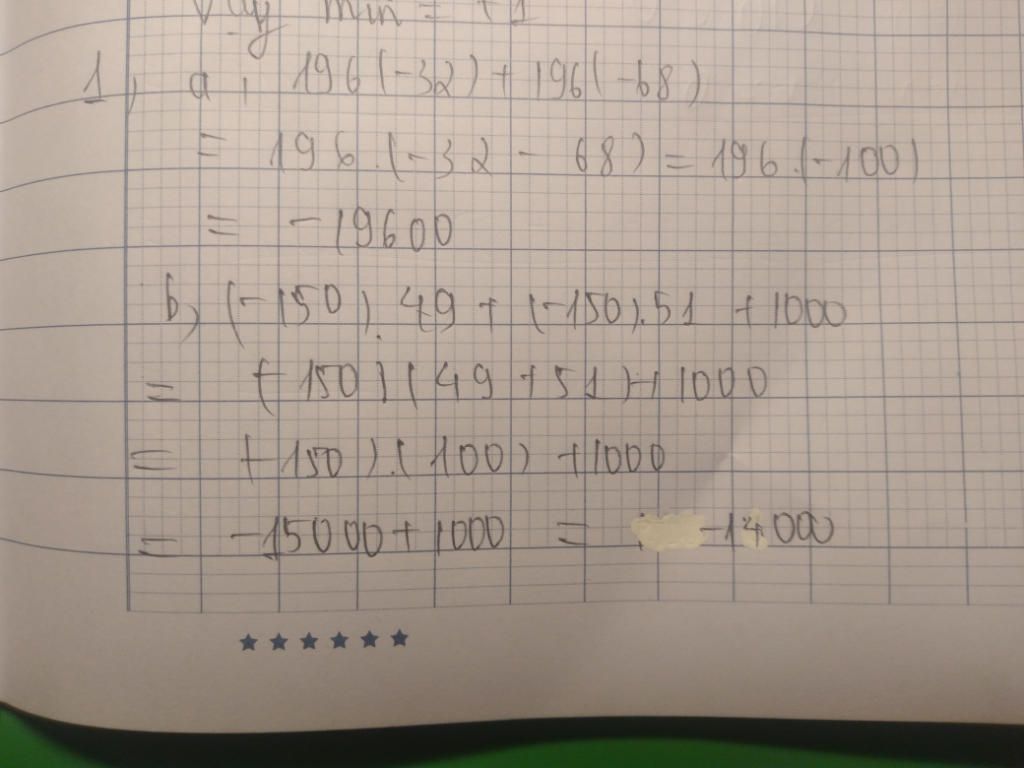 Vậy min = +1
1, a, 196(-32) + 196(-68)
= 196.(-32 - 68) = 196.(-100)
= -19600
b, (-150).49 + (-150).51 + 1000
= (-150)(49 + 51) + 1000
= (-150).(100) + 1000
= -15000 + 1000 = -14000